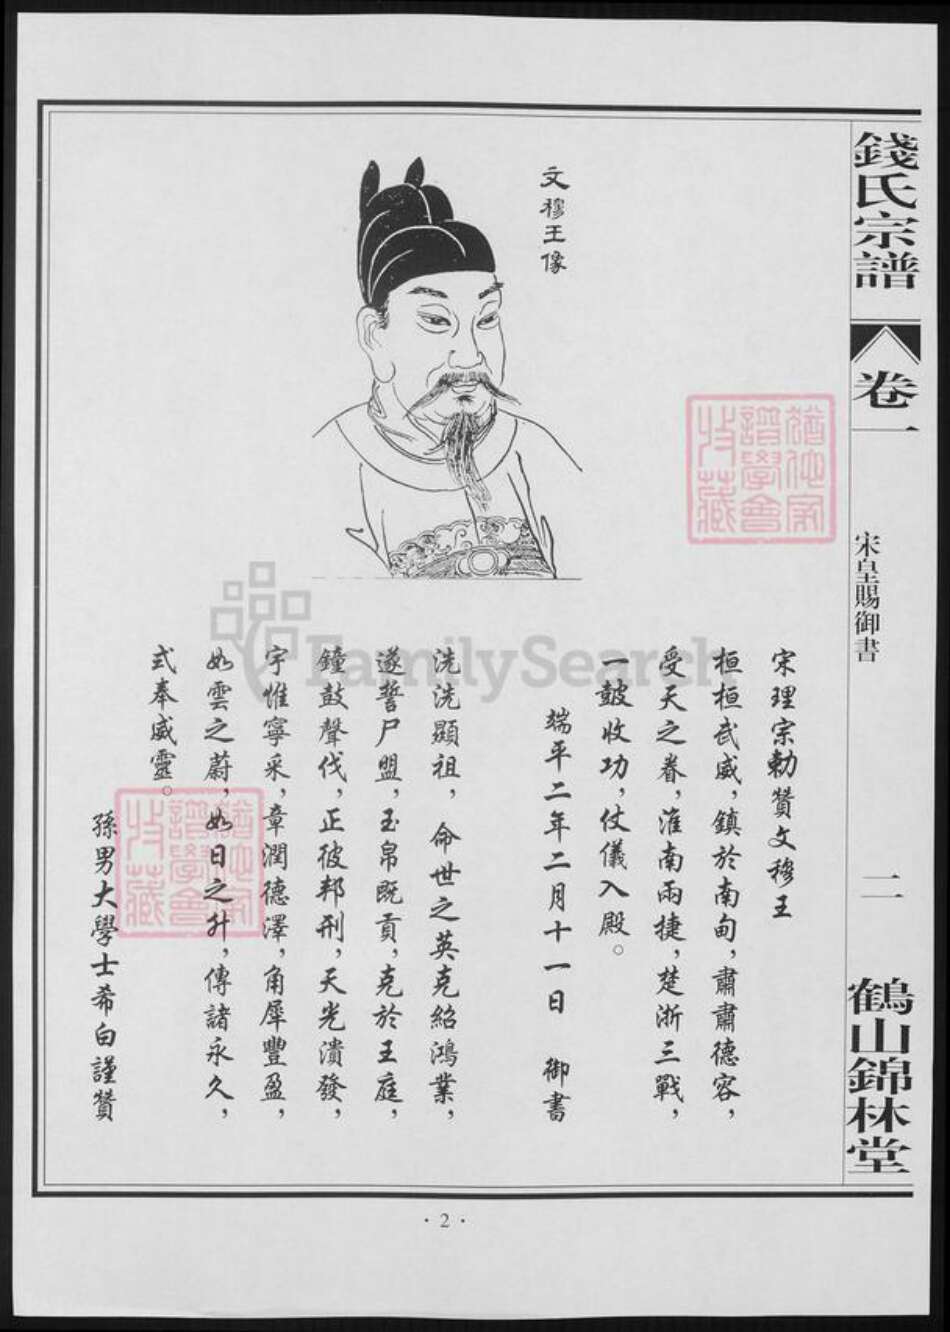 錢氏宗譜
卷一
宋皇賜御書
二
鶴山錦林堂
文穆王像
宋理宗勅贊文穆王
桓桓武威，鎮於南甸，肅肅德容，
受天之眷，淮南兩捷，楚浙三戰，
一鼓收功，仗儀入殿。
端平二年二月十一日 御書
洸洸顯祖，命世之英克紹鴻業，
遂誓尸盟，玉帛既貢，克於王庭，
鐘鼓聲伐，正彼邦刑，天光潰發，
宇惟寧采，章潤德澤，角犀豐盈，
如雲之蔚，如日之升，傳諸永久，
式奉威靈。
孫男大學士希白謹贊
譜學會
收藏
譜學會
收藏
FamilySearch
·2·